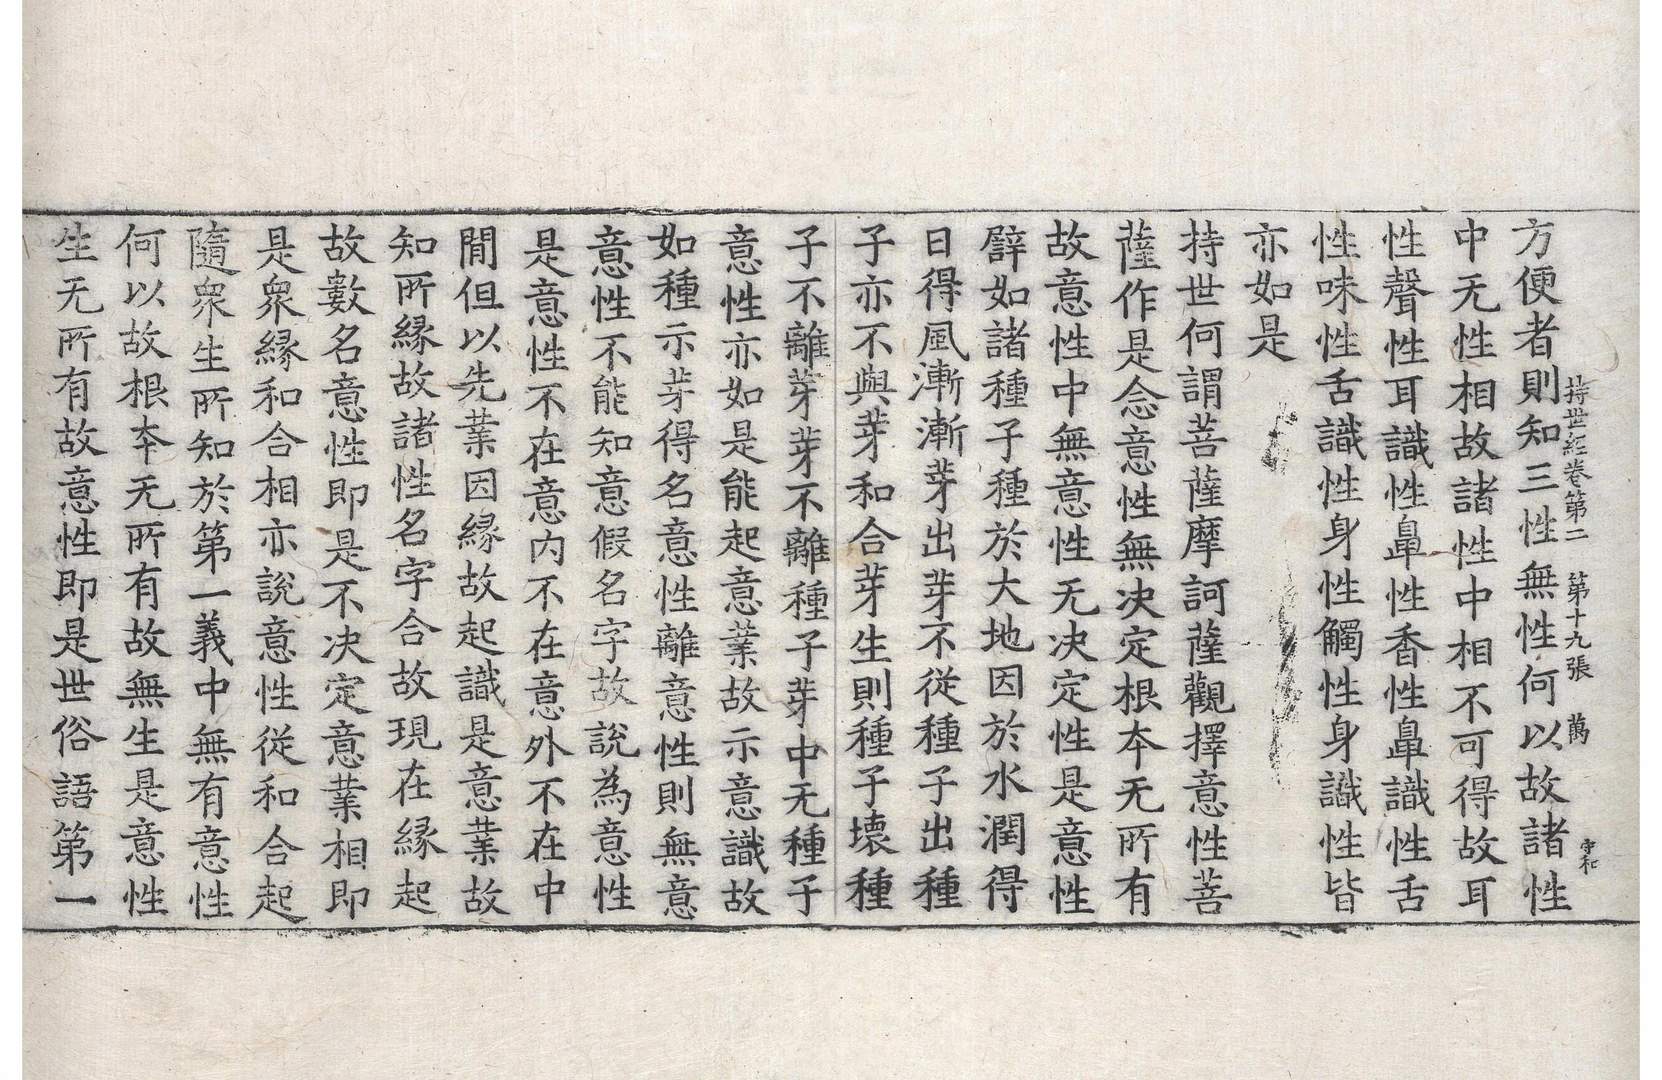 持世経卷第二 第十九張 萬
守和
方便者則知三性無性何以故諸性
中无性相故諸性中相不可得故耳
性聲性耳識性鼻性香性鼻識性舌
性味性舌識性身性觸性身識性皆
亦如是
持世何謂菩薩摩訶薩觀擇意性菩
薩作是念意性無决定根夲无所有
故意性中無意性无决定性是意性
譬如諸種子種於大地因於水潤得
日得風漸漸芽出芽不從種子出種
子亦不與芽和合芽生則種子壞種
子不離芽芽不離種子芽中无種子
意性亦如是能起意業故示意識故
如種示芽得名意性離意性則無意
意性不能知意假名字故說為意性
是意性不在意内不在意外不在中
閒但以先業因縁故起識是意業故
知所縁故諸性名字合故現在縁起
故數名意性即是不决定意業相即
是衆縁和合相亦說意性從和合起
隨衆生所知於第一義中無有意性
何以故根夲无所有故無生是意性
生无所有故意性即是世俗語第一